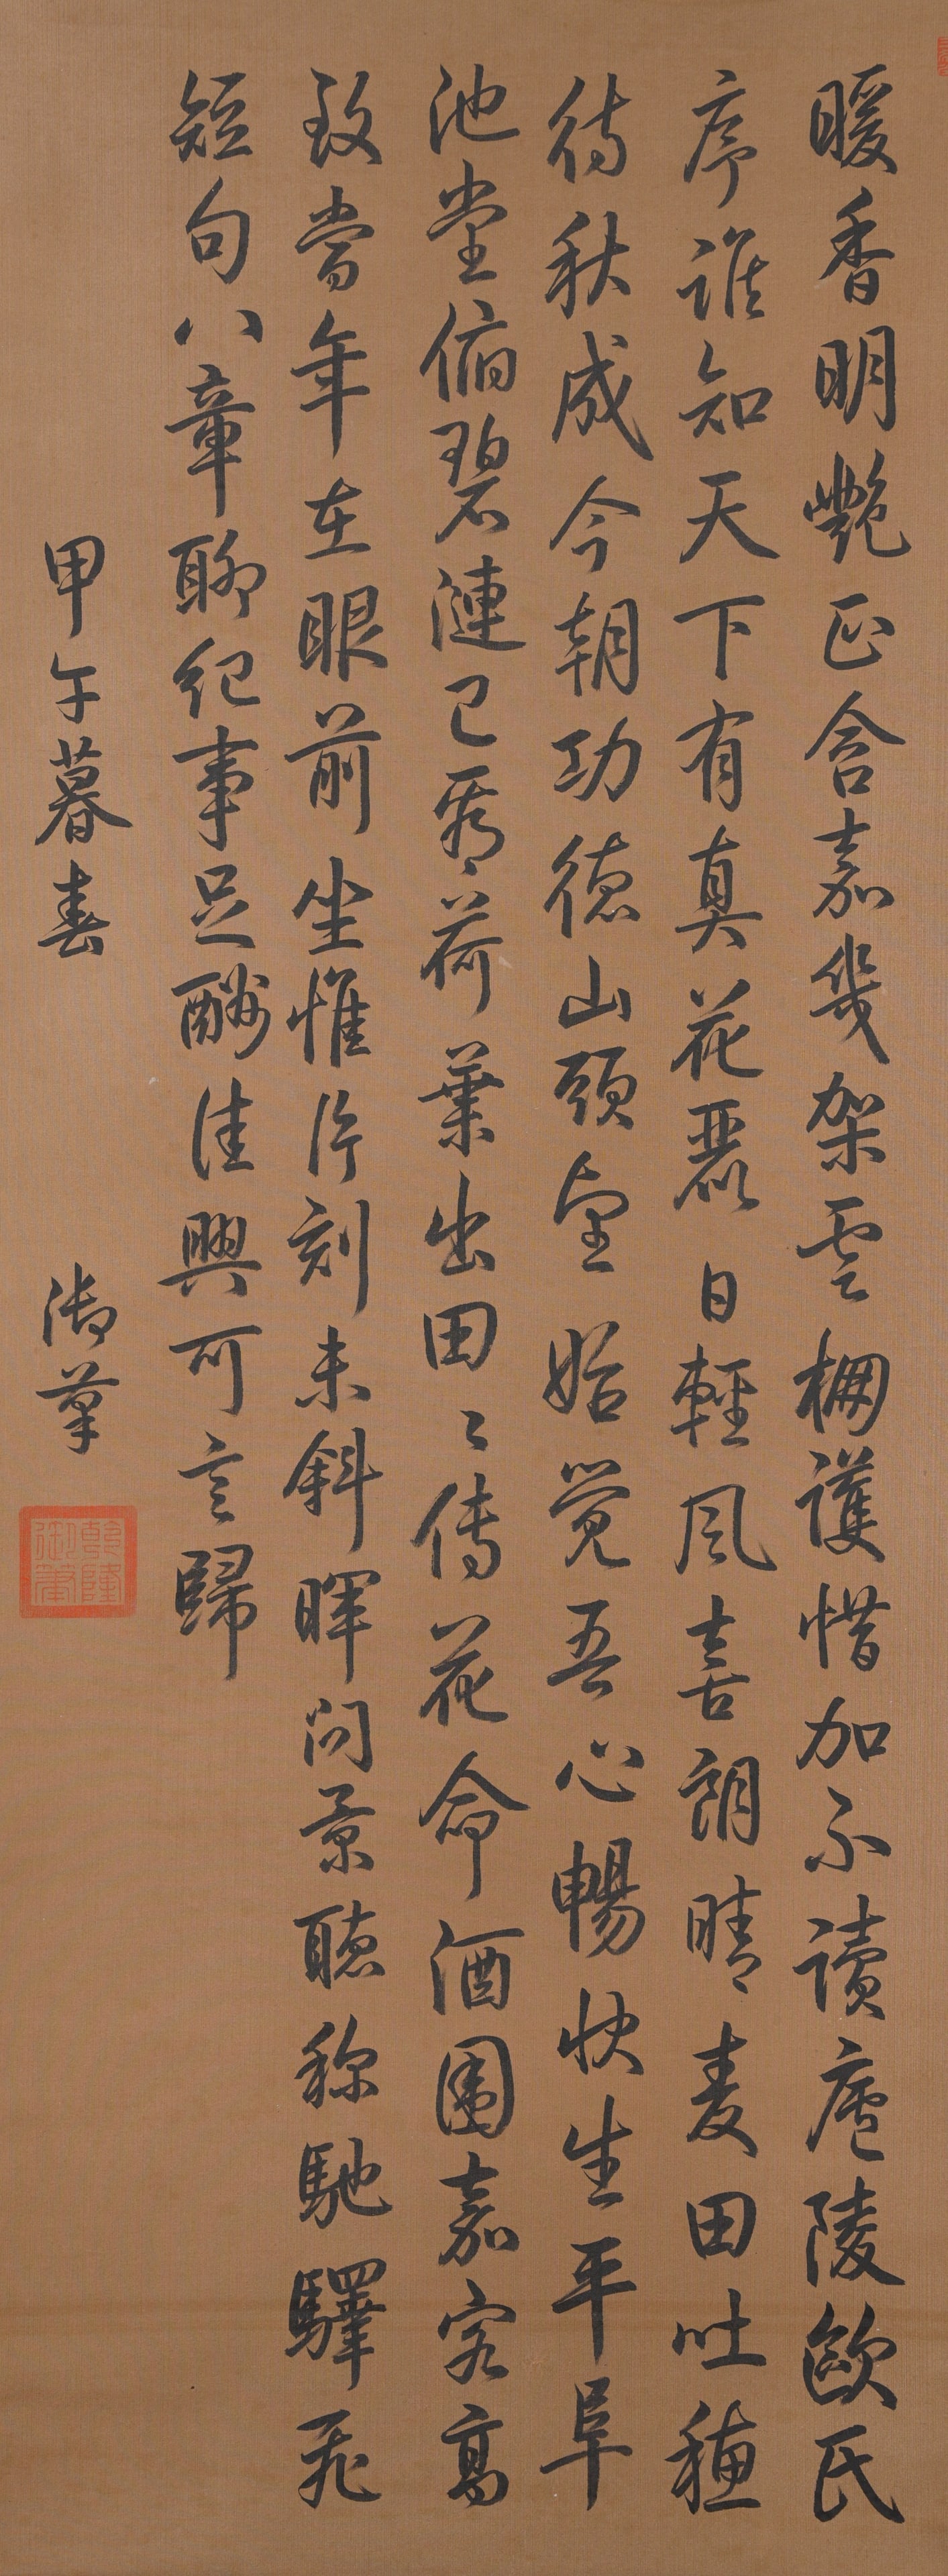 暖香明艷正含嘉幾架雲棚護惜加不讀廬陵歐氏
序誰知天下有真花麗日輕風喜朗晴麦田吐穗
待秋成今朝功德山頭望始覺吾心暢快生平阜
池堂俯碧漣已看荷葉出田〻傳花命酒圍嘉客高
致當年在眼前坐惟片刻未斜暉問景聽称馳驛飛
短句八章聊紀事足酬佳興可言歸
甲午暮春
御筆
乾隆
御筆